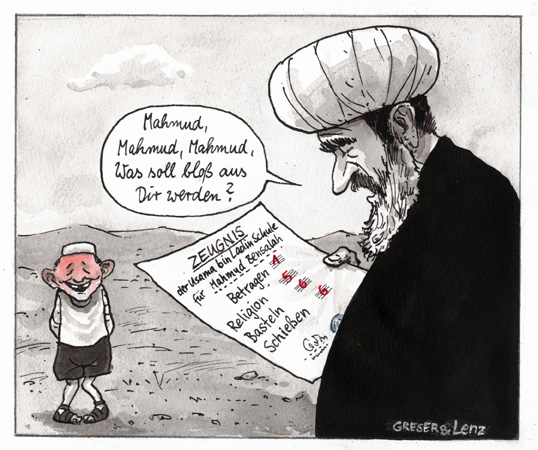 Mahmud,
Mahmud, Mahmud,
Was soll bloß aus
Dir werden?
ZEUGNIS
der Usama bin Ladin Schule
für Mahmud Bensalah
Betragen 1
Religion 5
Basteln 6
Schießen 6
GRESER & Lenz